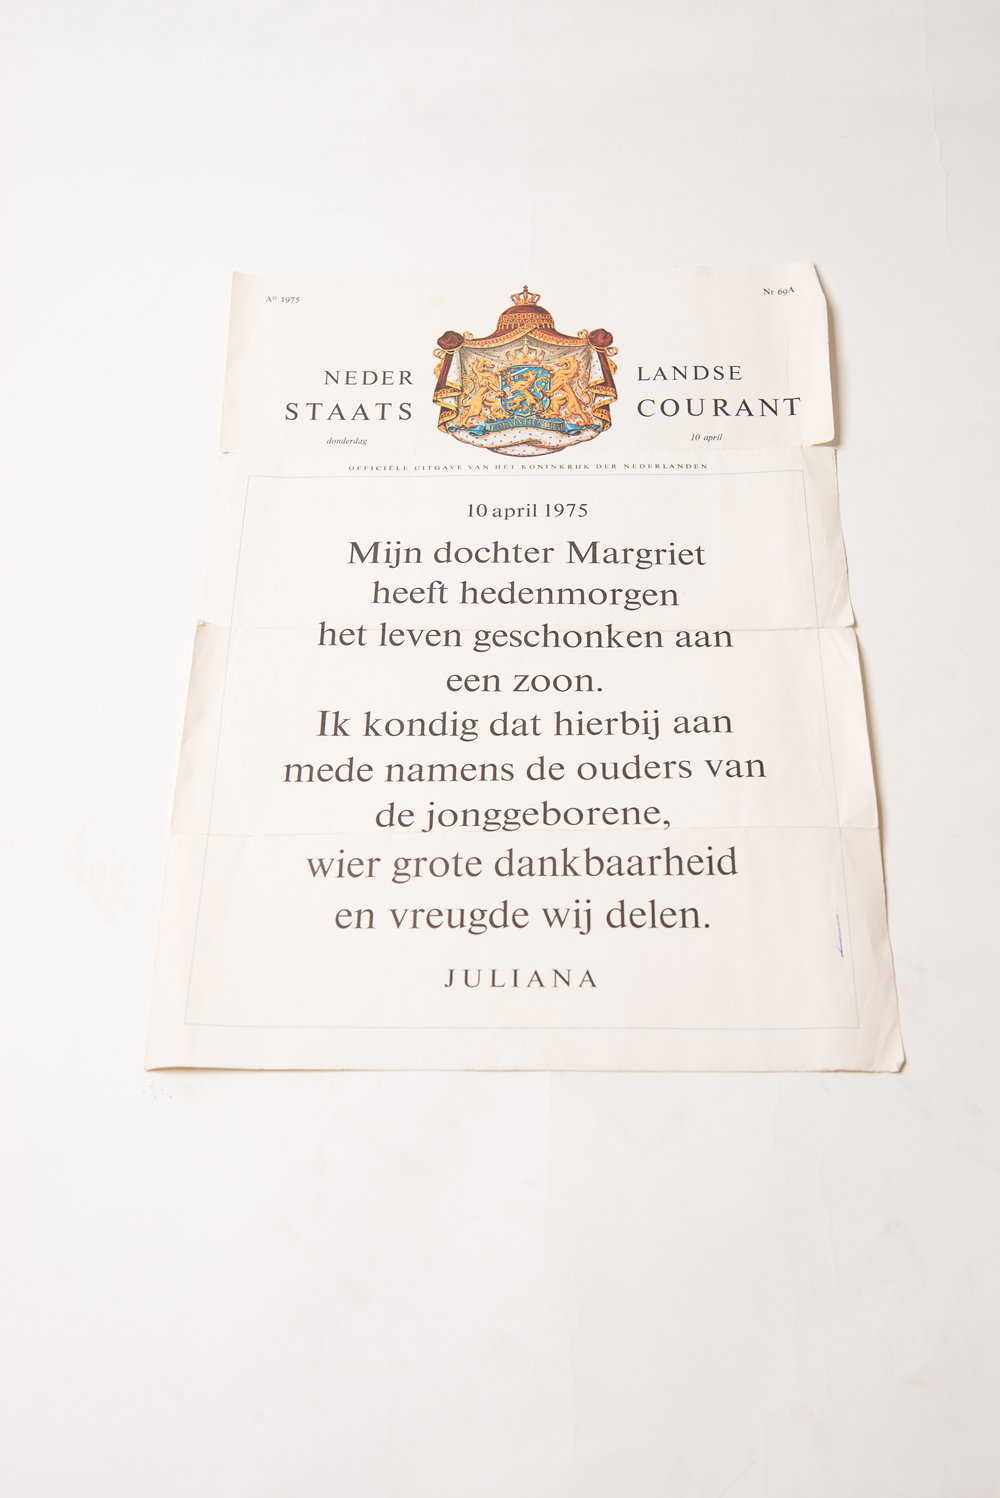 Aº 1975
Nr 69A
NEDER LANDSE
STAATS COURANT
donderdag 10 april
OFFICIËLE UITGAVE VAN HET KONINKRIJK DER NEDERLANDEN
10 april 1975
Mijn dochter Margriet
heeft hedenmorgen
het leven geschonken aan
een zoon.
Ik kondig dat hierbij aan
mede namens de ouders van
de jonggeborene,
wier grote dankbaarheid
en vreugde wij delen.
JULIANA